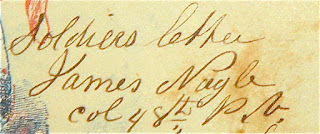 Soldiers letter
James Nagle
col 48th P.V.